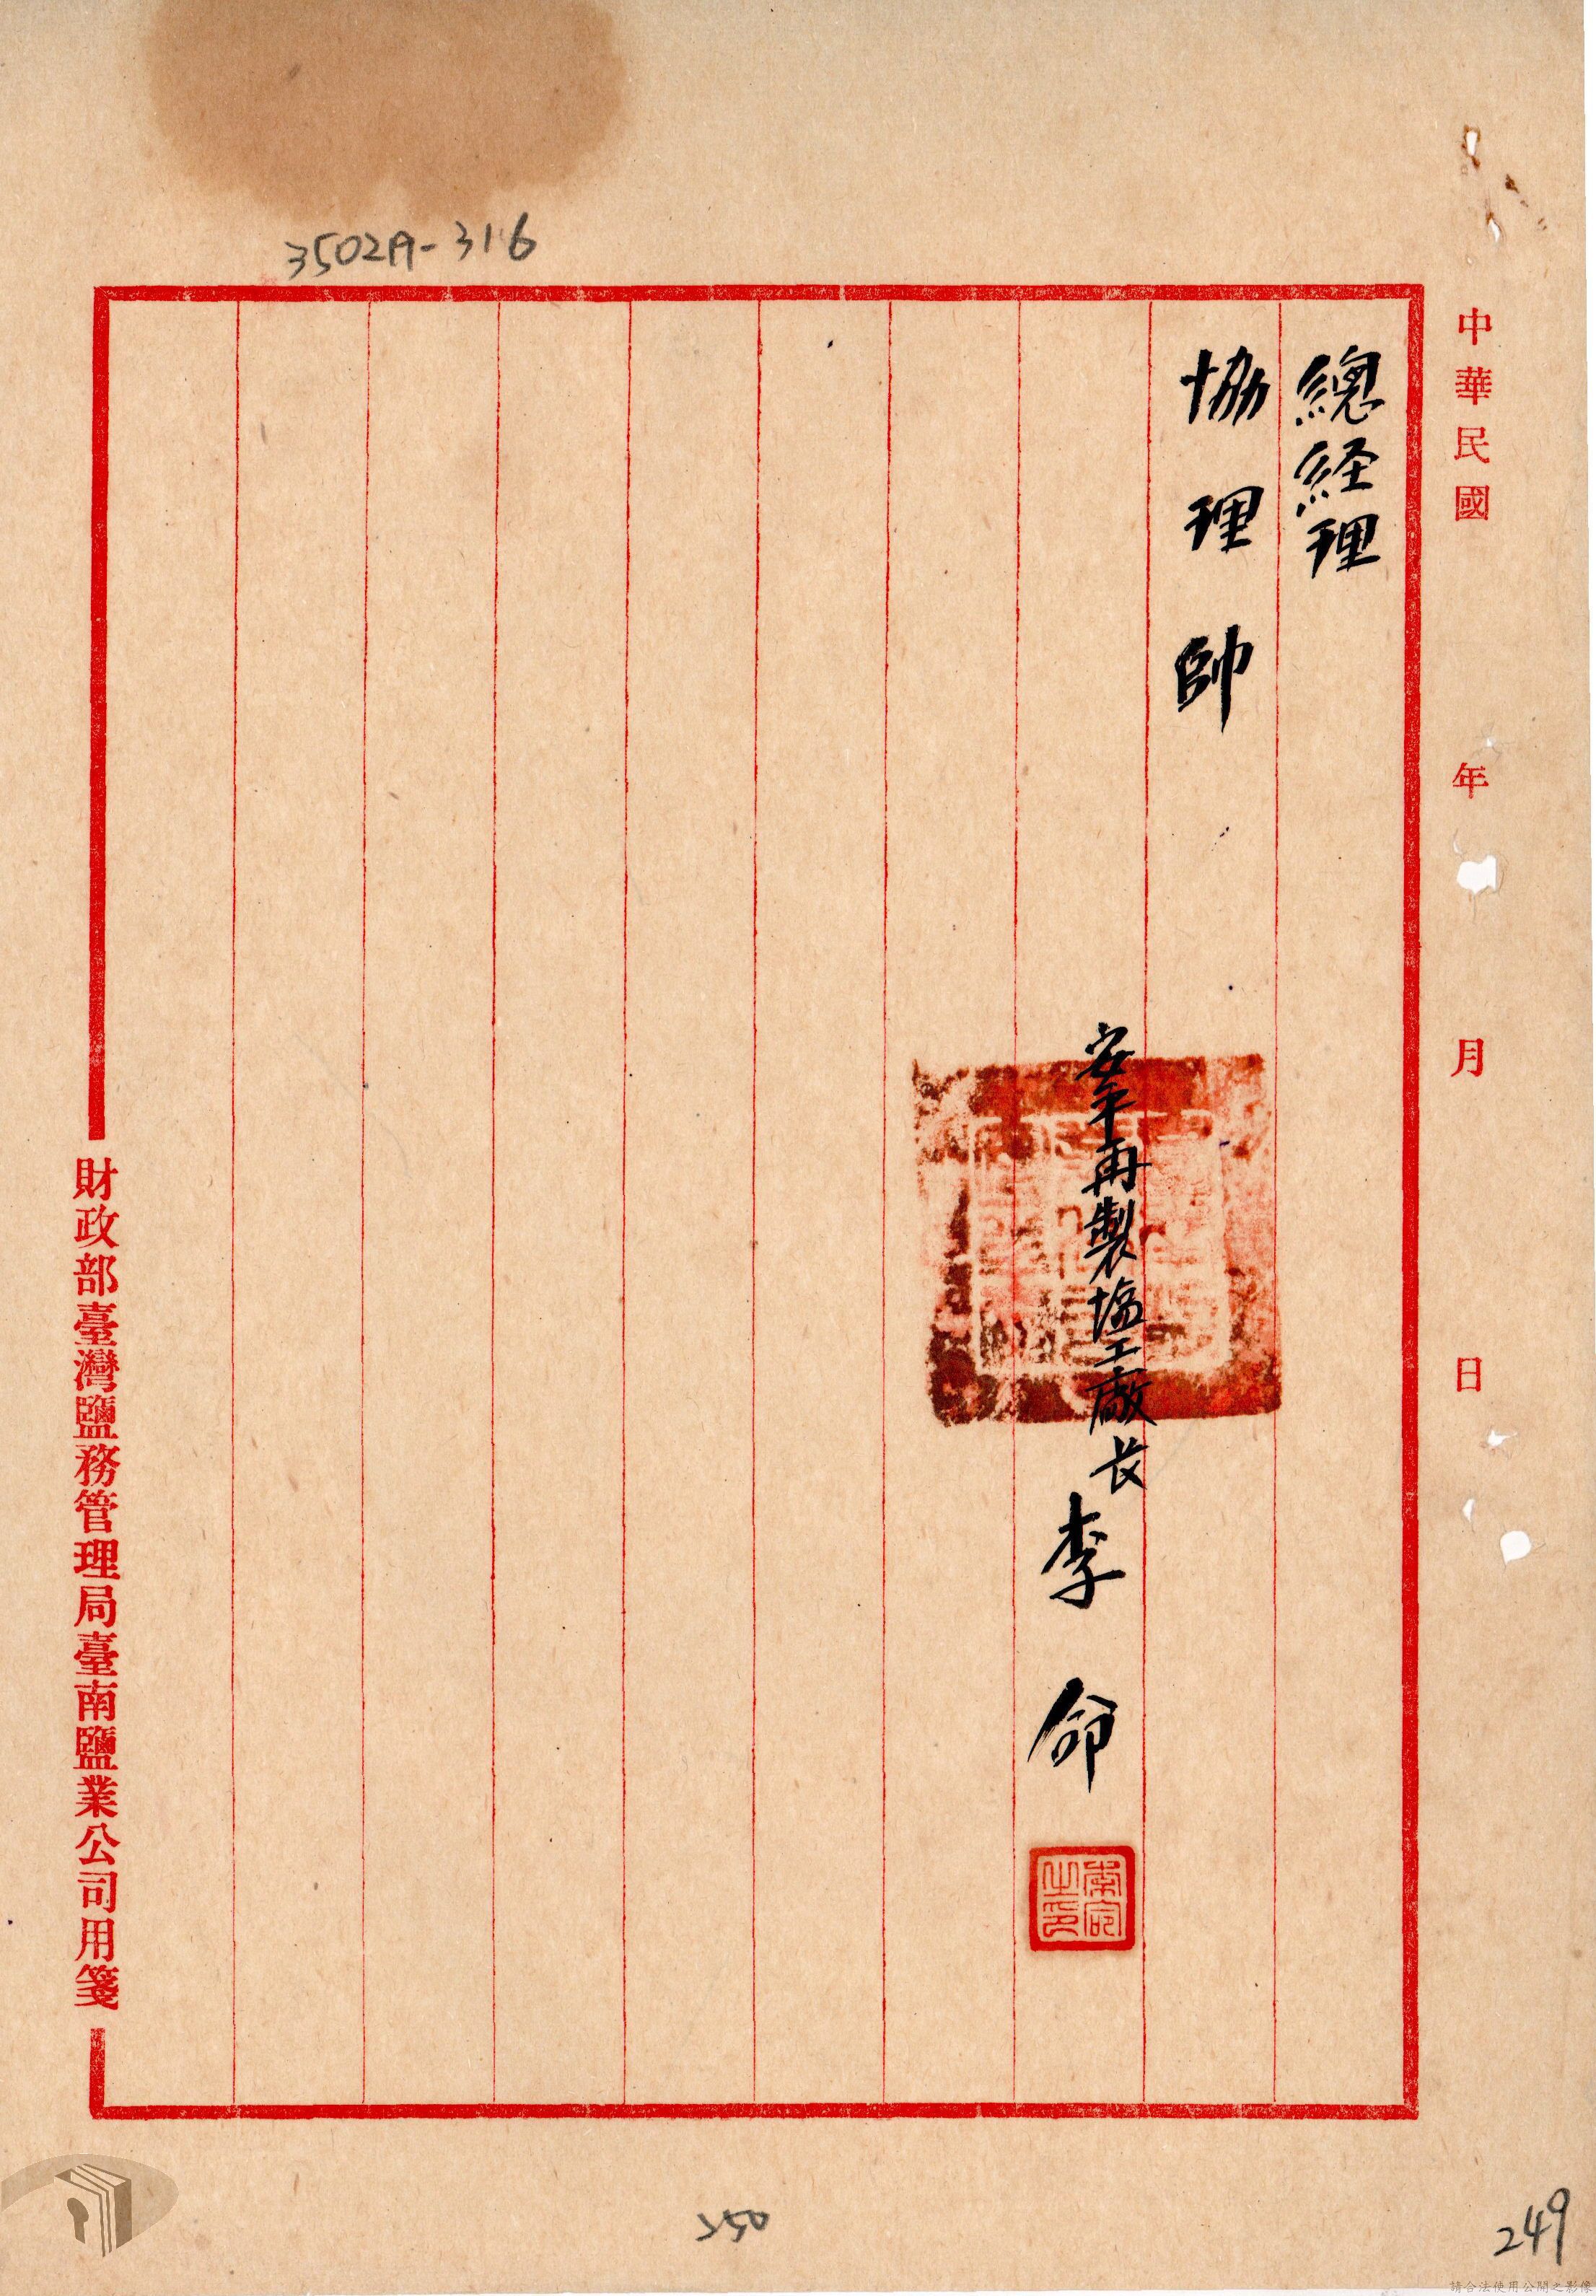 3502A-316
中華民國 年 月 日
總経理
協理帥
安平再製塩工廠长
李命
財政部臺灣鹽務管理局臺南鹽業公司用箋
250
249
請合法使用公開之影像